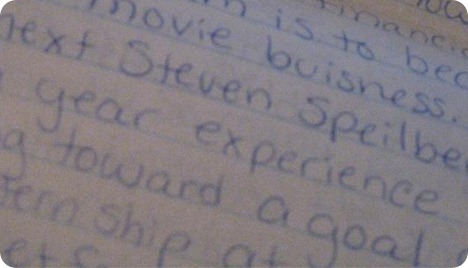 is to bec
movie buisness.
next Steven Speilbe
year experience
g toward a goal
ternship at